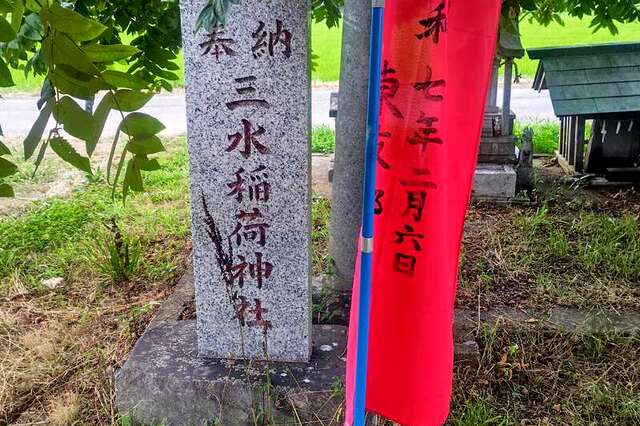 奉納
三水稲荷神社
和七年二月六日